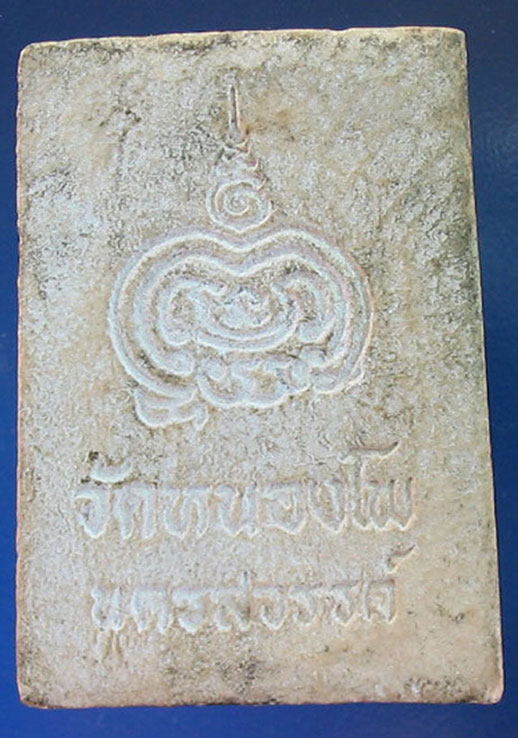 วัดหนองโพ
นครสวรรค์